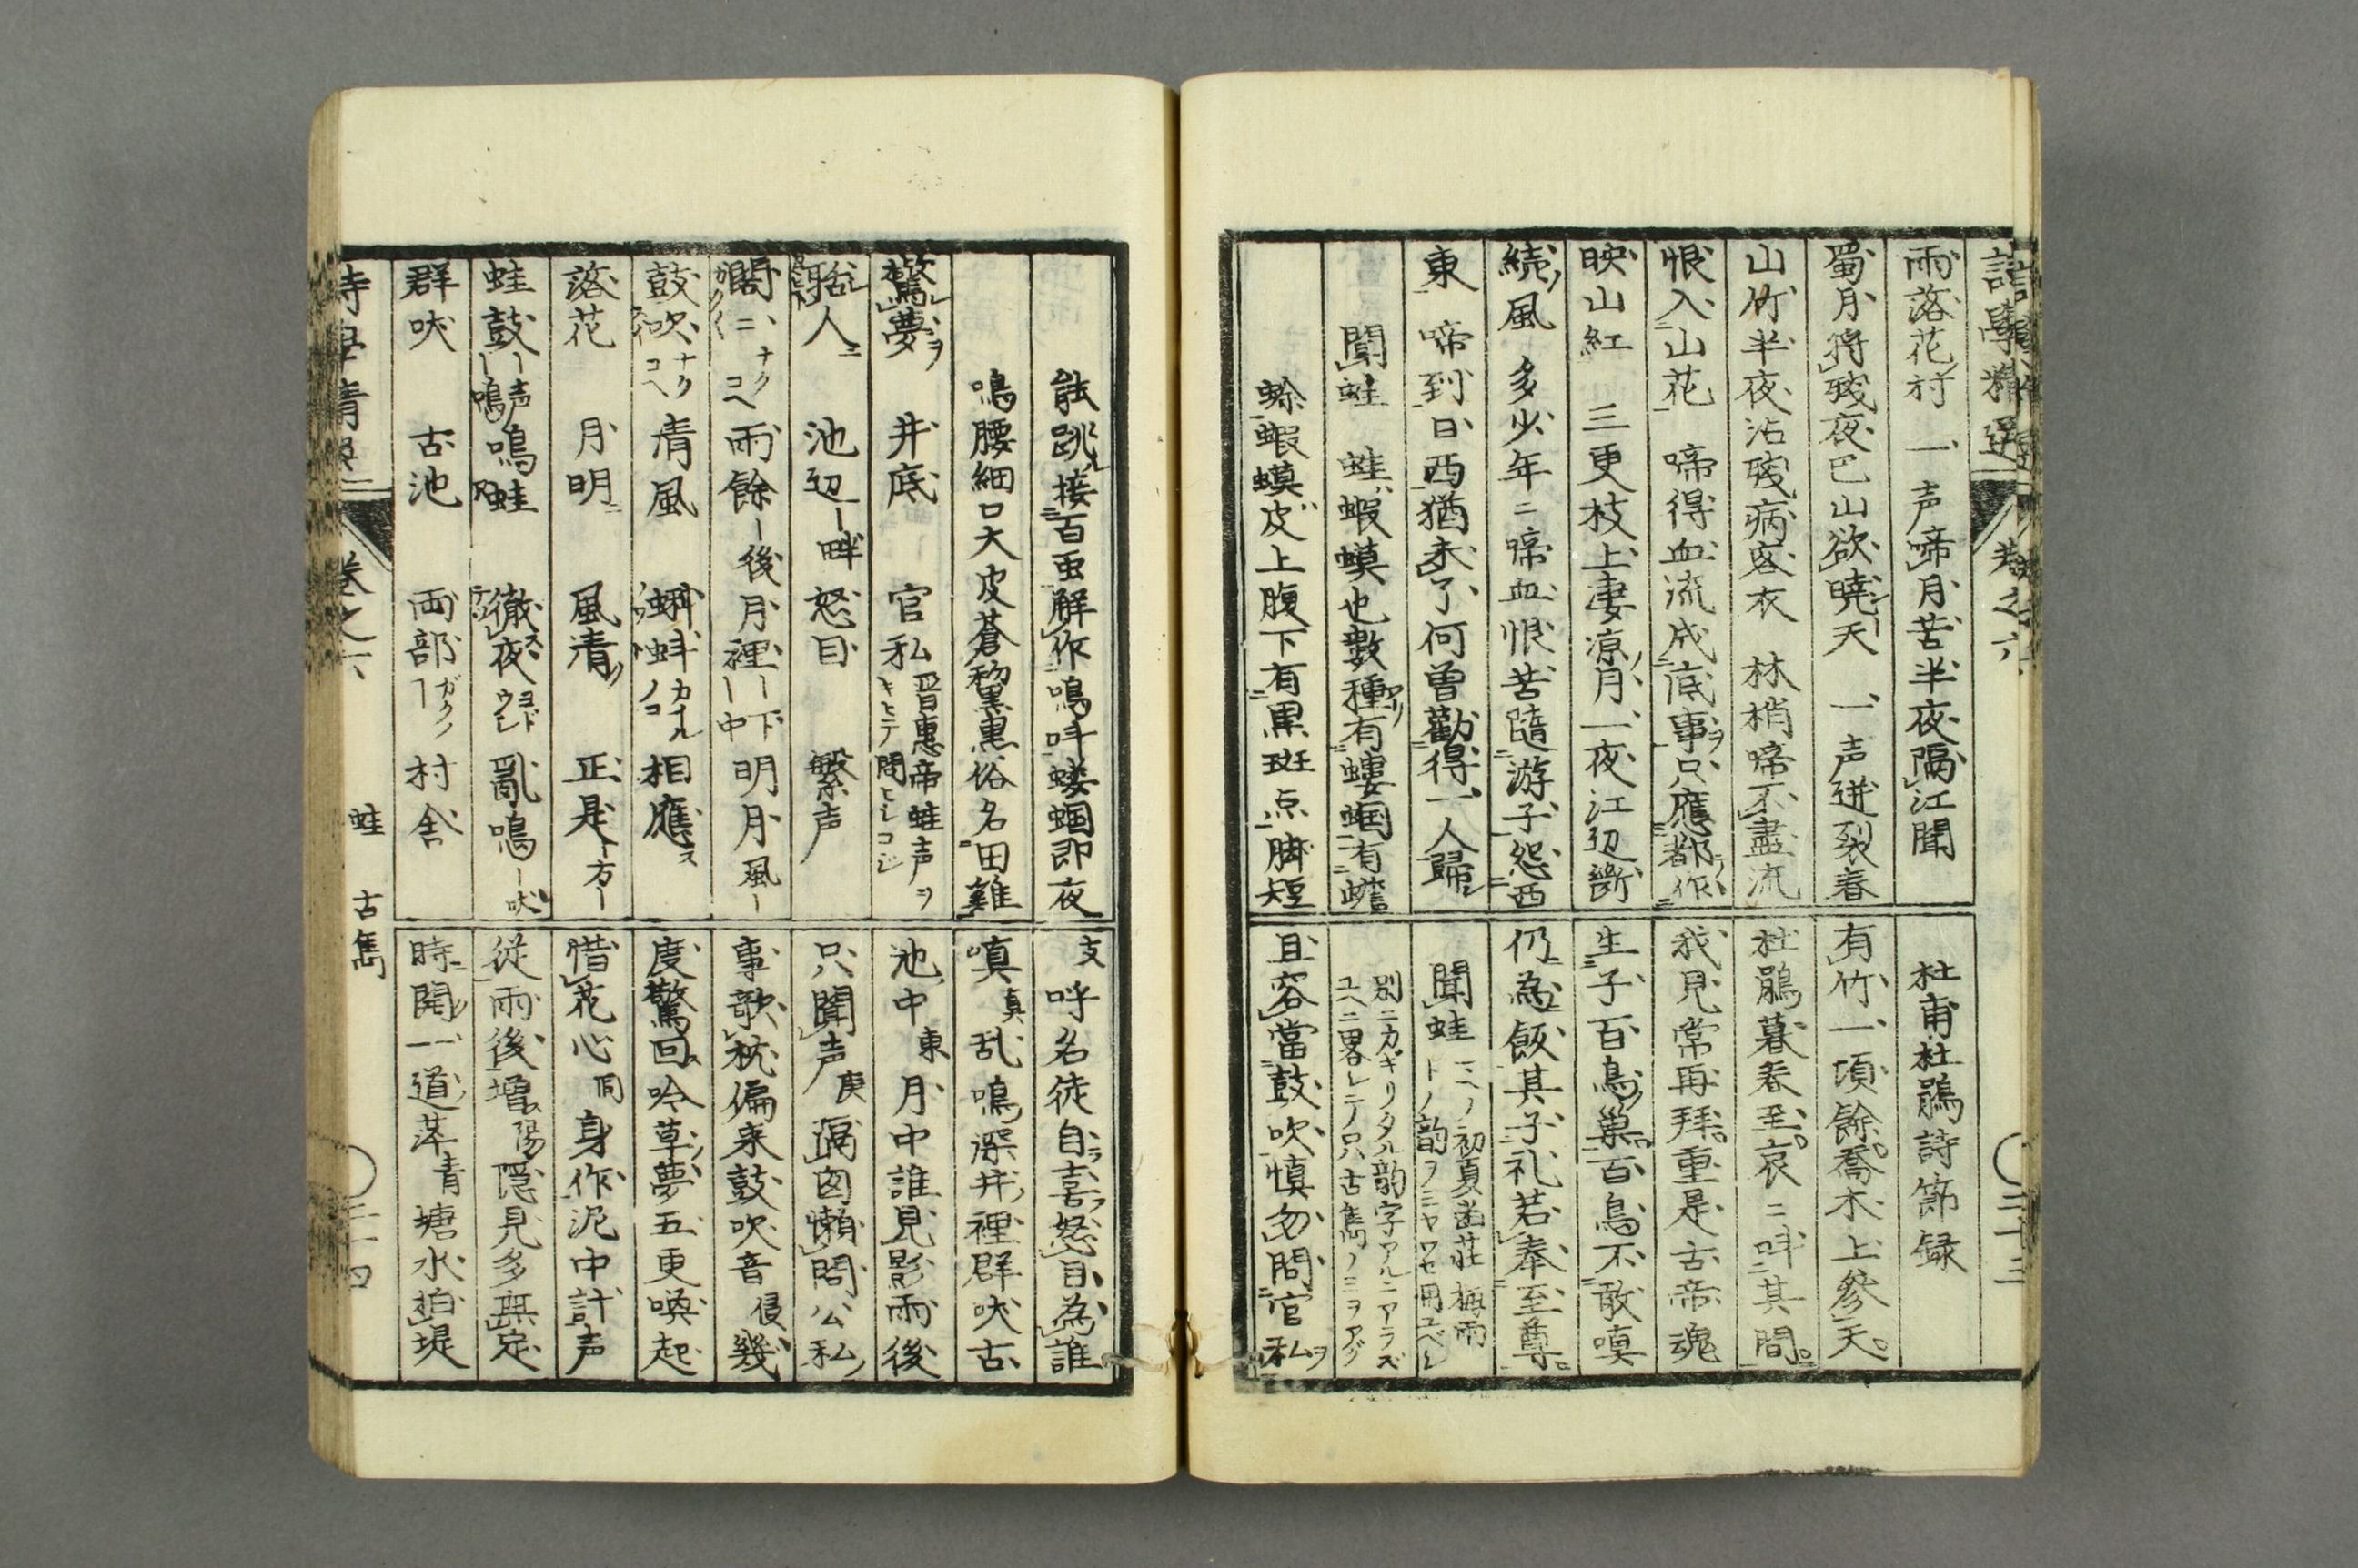 詩學精選 卷之六 三十三
雨落花村 一声啼月苦半夜隔江聞
蜀月將殘夜巴山欲曉天 一声迸裂春
山竹半夜沾殘病客衣 林梢啼不盡流
恨入山花 啼得血流成底事ヲ只應都ラ作
映山紅 三更枝上凄凉ノ月一夜江辺斷
続ノ風 多少年ニ啼血恨苦隨游子怨西
東 啼到日西猶未了何曽勸得一人歸
聞蛙 蛙蝦蟆也數種アリ有螻蟈有蟾
蜍蝦蟆皮上腹下有黒斑点脚短
杜甫杜鵑詩節録
有竹一頃餘喬木上參天
杜鵑暮春至哀ニ叫其間
我見常再拜重是古帝魂
生子百鳥ノ巢百鳥不敢嗔
仍為飯其子礼若奉至尊
聞蛙 ニハノ初夏幽荘梅雨
トノ韵ヲミヤワセ用ユベシ
別ニカギリタル韵字アルニアラズ
ユヘニ畧シテ只古雋ノミヲアグ
且容當鼓吹慎勿問官私ヲ
能跳接百虫解作鳴叫螻蟈即夜
鳴腰細口大皮蒼黎黒俗名田雞
驚夢ヲ 井底 官私 晋惠帝蛙声ヲ
キヒテ問ヒシコジ
聒人ニ 池辺ー畔 怒目 繁声
閣ニ ナク コヘ 雨餘ー後 月裡ー下ー中 明月風ー
鼓吹 ナク コヘ 清風 蝌蚪 カイルノコ 相應ス
落花 月明 風清 正是ー方ー
蛙鼓ー声ー鳴 鳴蛙 徹夜ス ヨドウシ 亂鳴ー吠
群吠 古池 両部ー ガクノ 村舎
支 呼名徒自喜怒目為誰
嗔 真 乱鳴深井ノ裡群吠古
池中 東 月中誰見影雨後
只聞声 庚 漏囱懶問公私
事歌枕偏来鼓吹音 侵 幾
度驚回吟草夢五更喚起
惜花心 同 身作泥中計声
従雨後増 陽 隠見多無定
時閙一道萍 青 塘水拍堤
詩學精選 卷之六 蛙 古雋 三十四